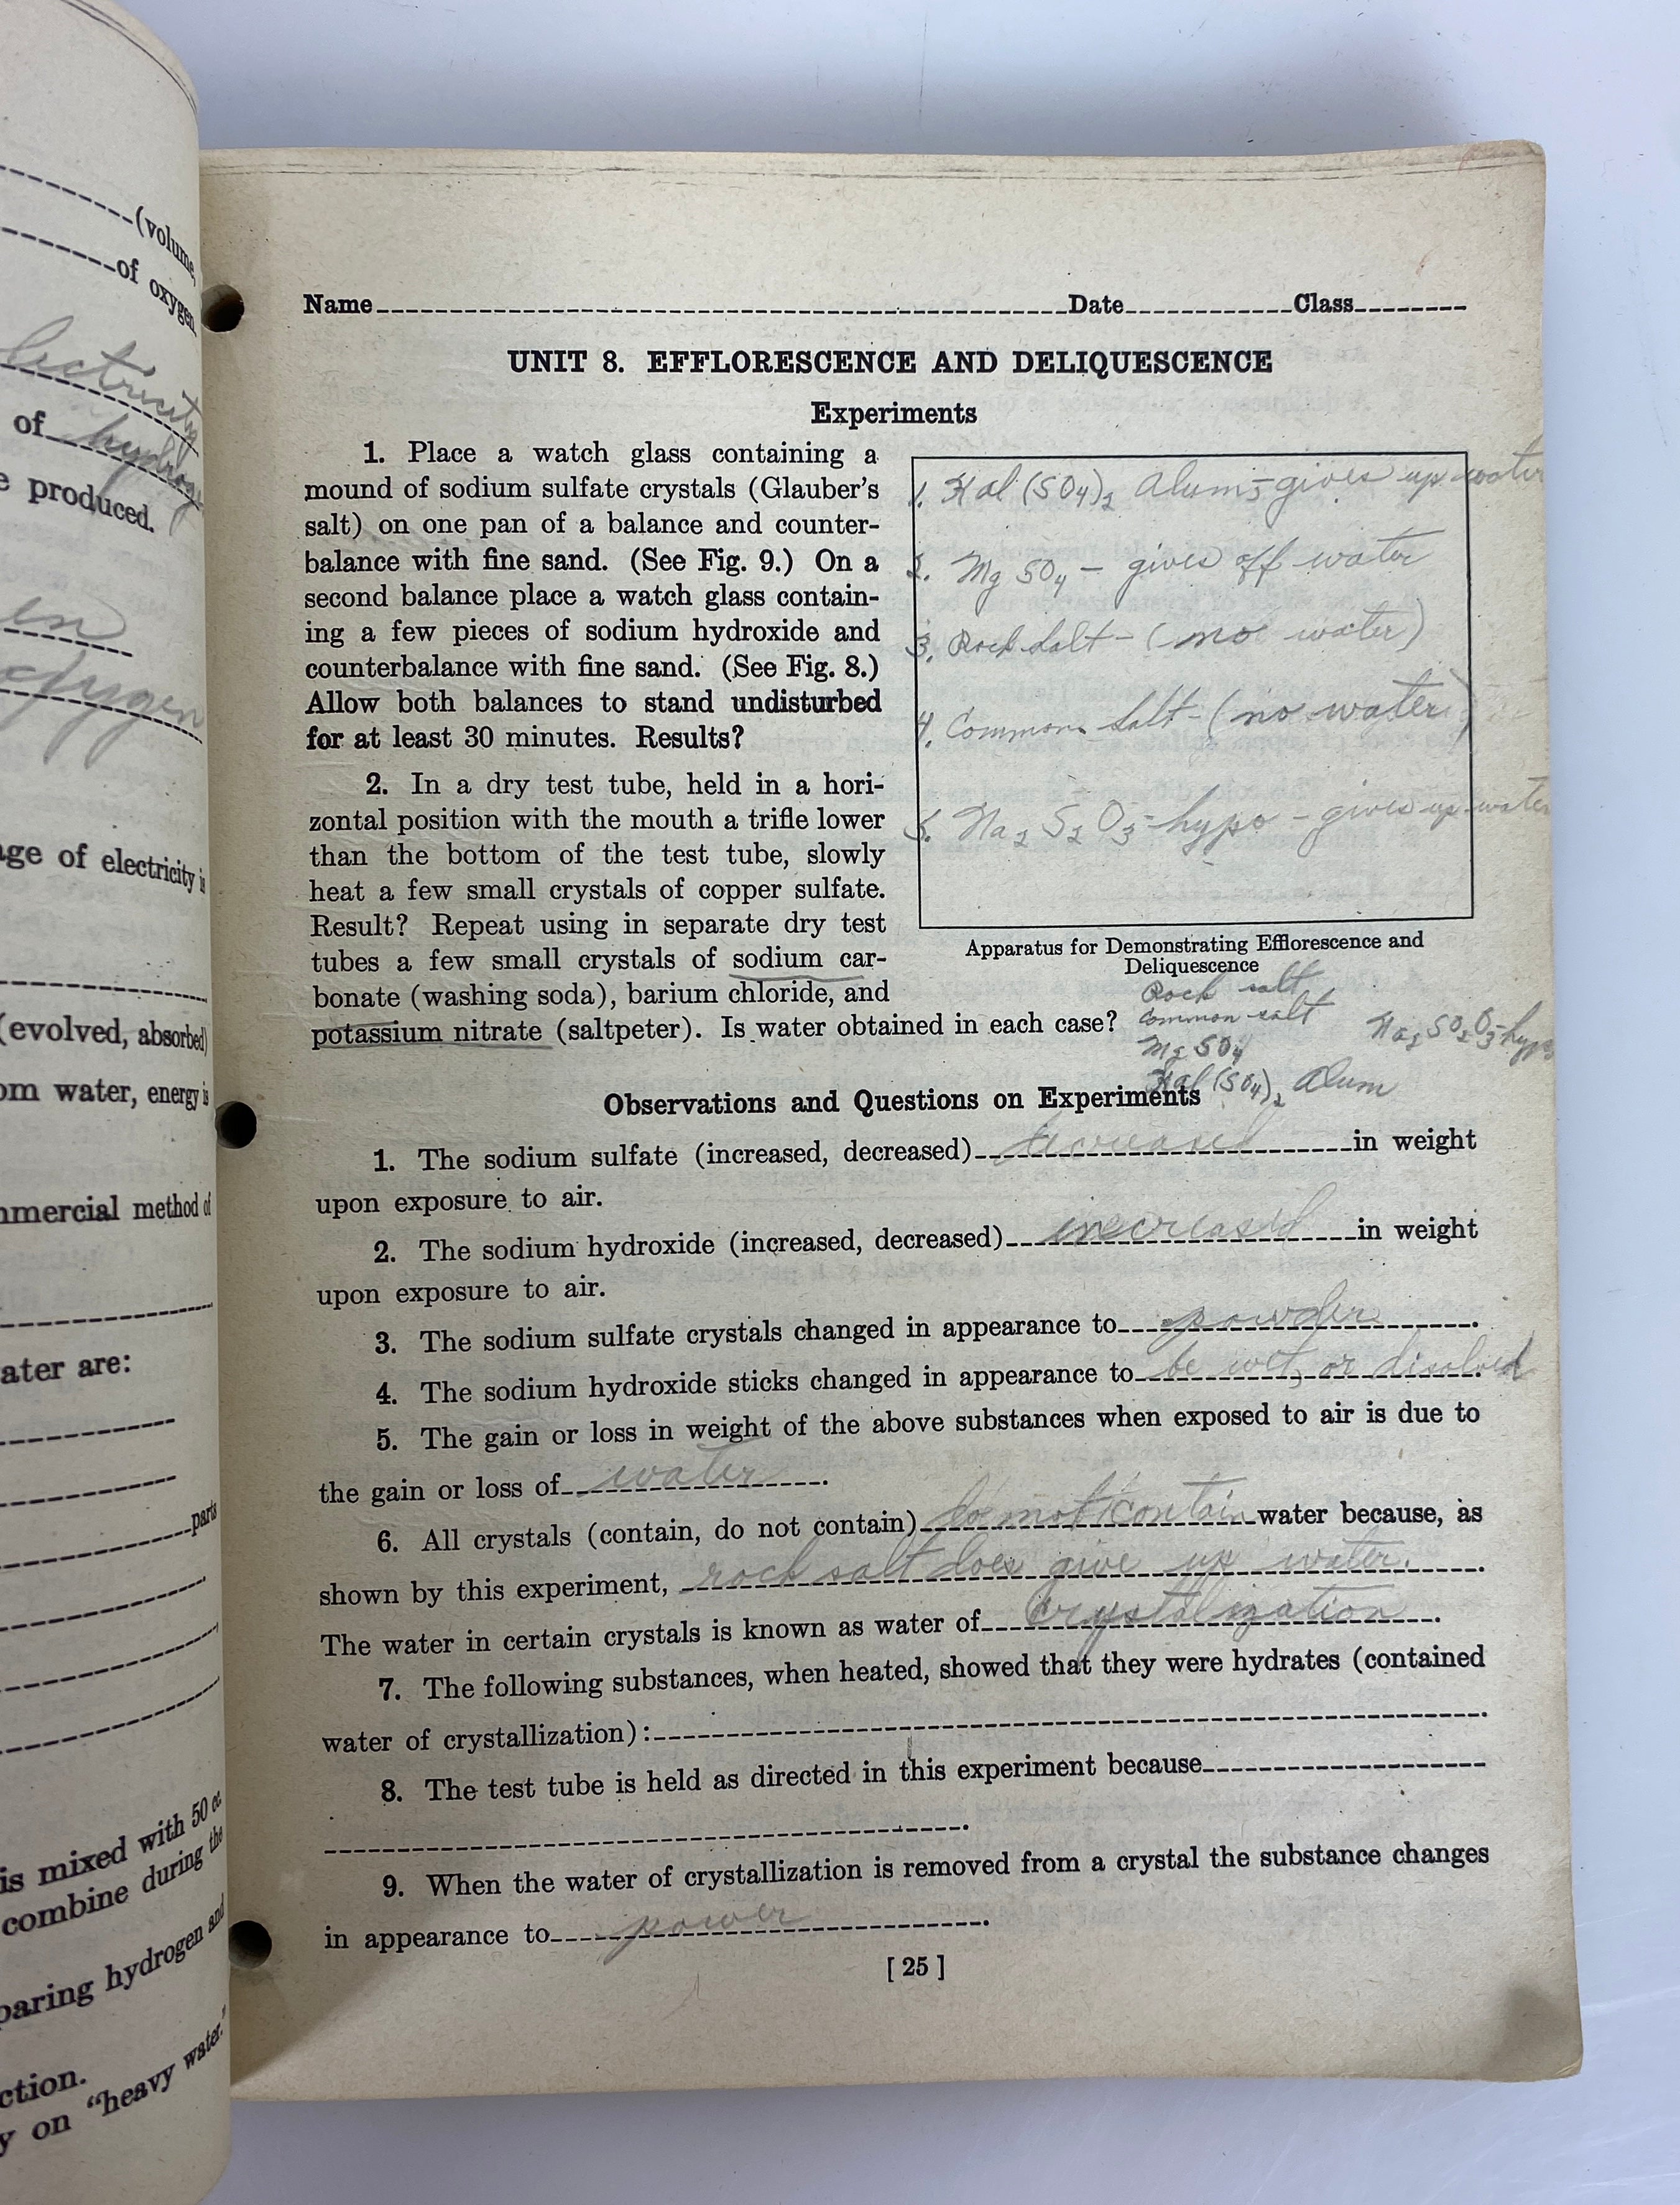 (volume,
of oxygen
lectricity
of hydrog
e produced.
en
oxygen
age of electricity is
(evolved, absorbed)
om water, energy is
mmercial method of
ater are:
parts
is mixed with 50 cc
combine during the
paring hydrogen and
ction.
y on "heavy water."
Name Date Class
UNIT 8. EFFLORESCENCE AND DELIQUESCENCE
Experiments
1. Place a watch glass containing a
mound of sodium sulfate crystals (Glauber's
salt) on one pan of a balance and counter-
balance with fine sand. (See Fig. 9.) On a
second balance place a watch glass contain-
ing a few pieces of sodium hydroxide and
counterbalance with fine sand. (See Fig. 8.)
Allow both balances to stand undisturbed
for at least 30 minutes. Results?
2. In a dry test tube, held in a hori-
zontal position with the mouth a trifle lower
than the bottom of the test tube, slowly
heat a few small crystals of copper sulfate.
Result? Repeat using in separate dry test
tubes a few small crystals of sodium car-
bonate (washing soda), barium chloride, and
potassium nitrate (saltpeter). Is water obtained in each case?
1. Kal (SO4)2 Alum - gives up water
2. Mg SO4 - gives off water
3. Rock Salt - (no water)
4. Common Salt - (no water)
5. Na2 S2 O3 - hypo - gives up water
Apparatus for Demonstrating Efflorescence and
Deliquescence
Rock salt
Common salt
Mg SO4
Kal (SO4)2 Alum
Na2 SO2O3-hypo
Observations and Questions on Experiments
1. The sodium sulfate (increased, decreased) decreased in weight
upon exposure to air.
2. The sodium hydroxide (increased, decreased) increased in weight
upon exposure to air.
3. The sodium sulfate crystals changed in appearance to powder.
4. The sodium hydroxide sticks changed in appearance to be wet, or disolved.
5. The gain or loss in weight of the above substances when exposed to air is due to
the gain or loss of water.
6. All crystals (contain, do not contain) do not contain water because, as
shown by this experiment, rock salt does give up water.
The water in certain crystals is known as water of Crystalization.
7. The following substances, when heated, showed that they were hydrates (contained
water of crystallization):.
8. The test tube is held as directed in this experiment because
.
9. When the water of crystallization is removed from a crystal the substance changes
in appearance to power.
[ 25 ]